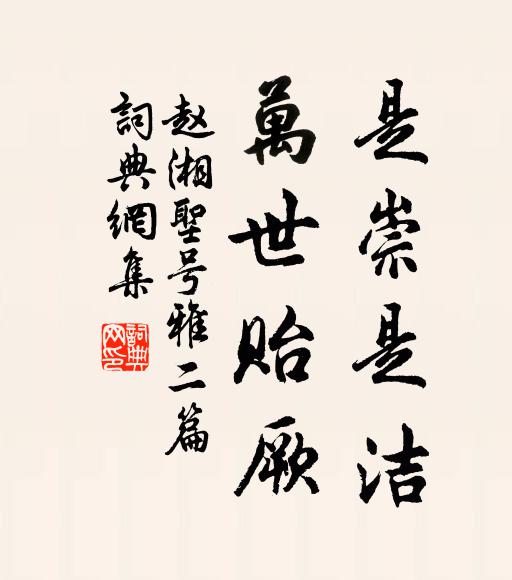 是崇是洁
萬世贻厥
赵湘聖号雅二篇
詞典網集
詞典网印